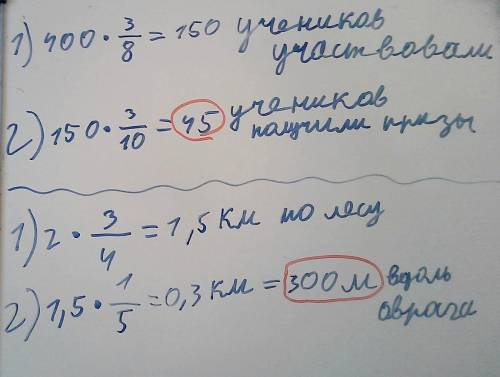 1) 400 · 3/8 = 150 учеников
участвовали
2) 150 · 3/10 = 45 учеников
получили призы
1) 2 · 3/4 = 1,5 км по лесу
2) 1,5 · 1/5 = 0,3 км = 300 м вдоль
оврага